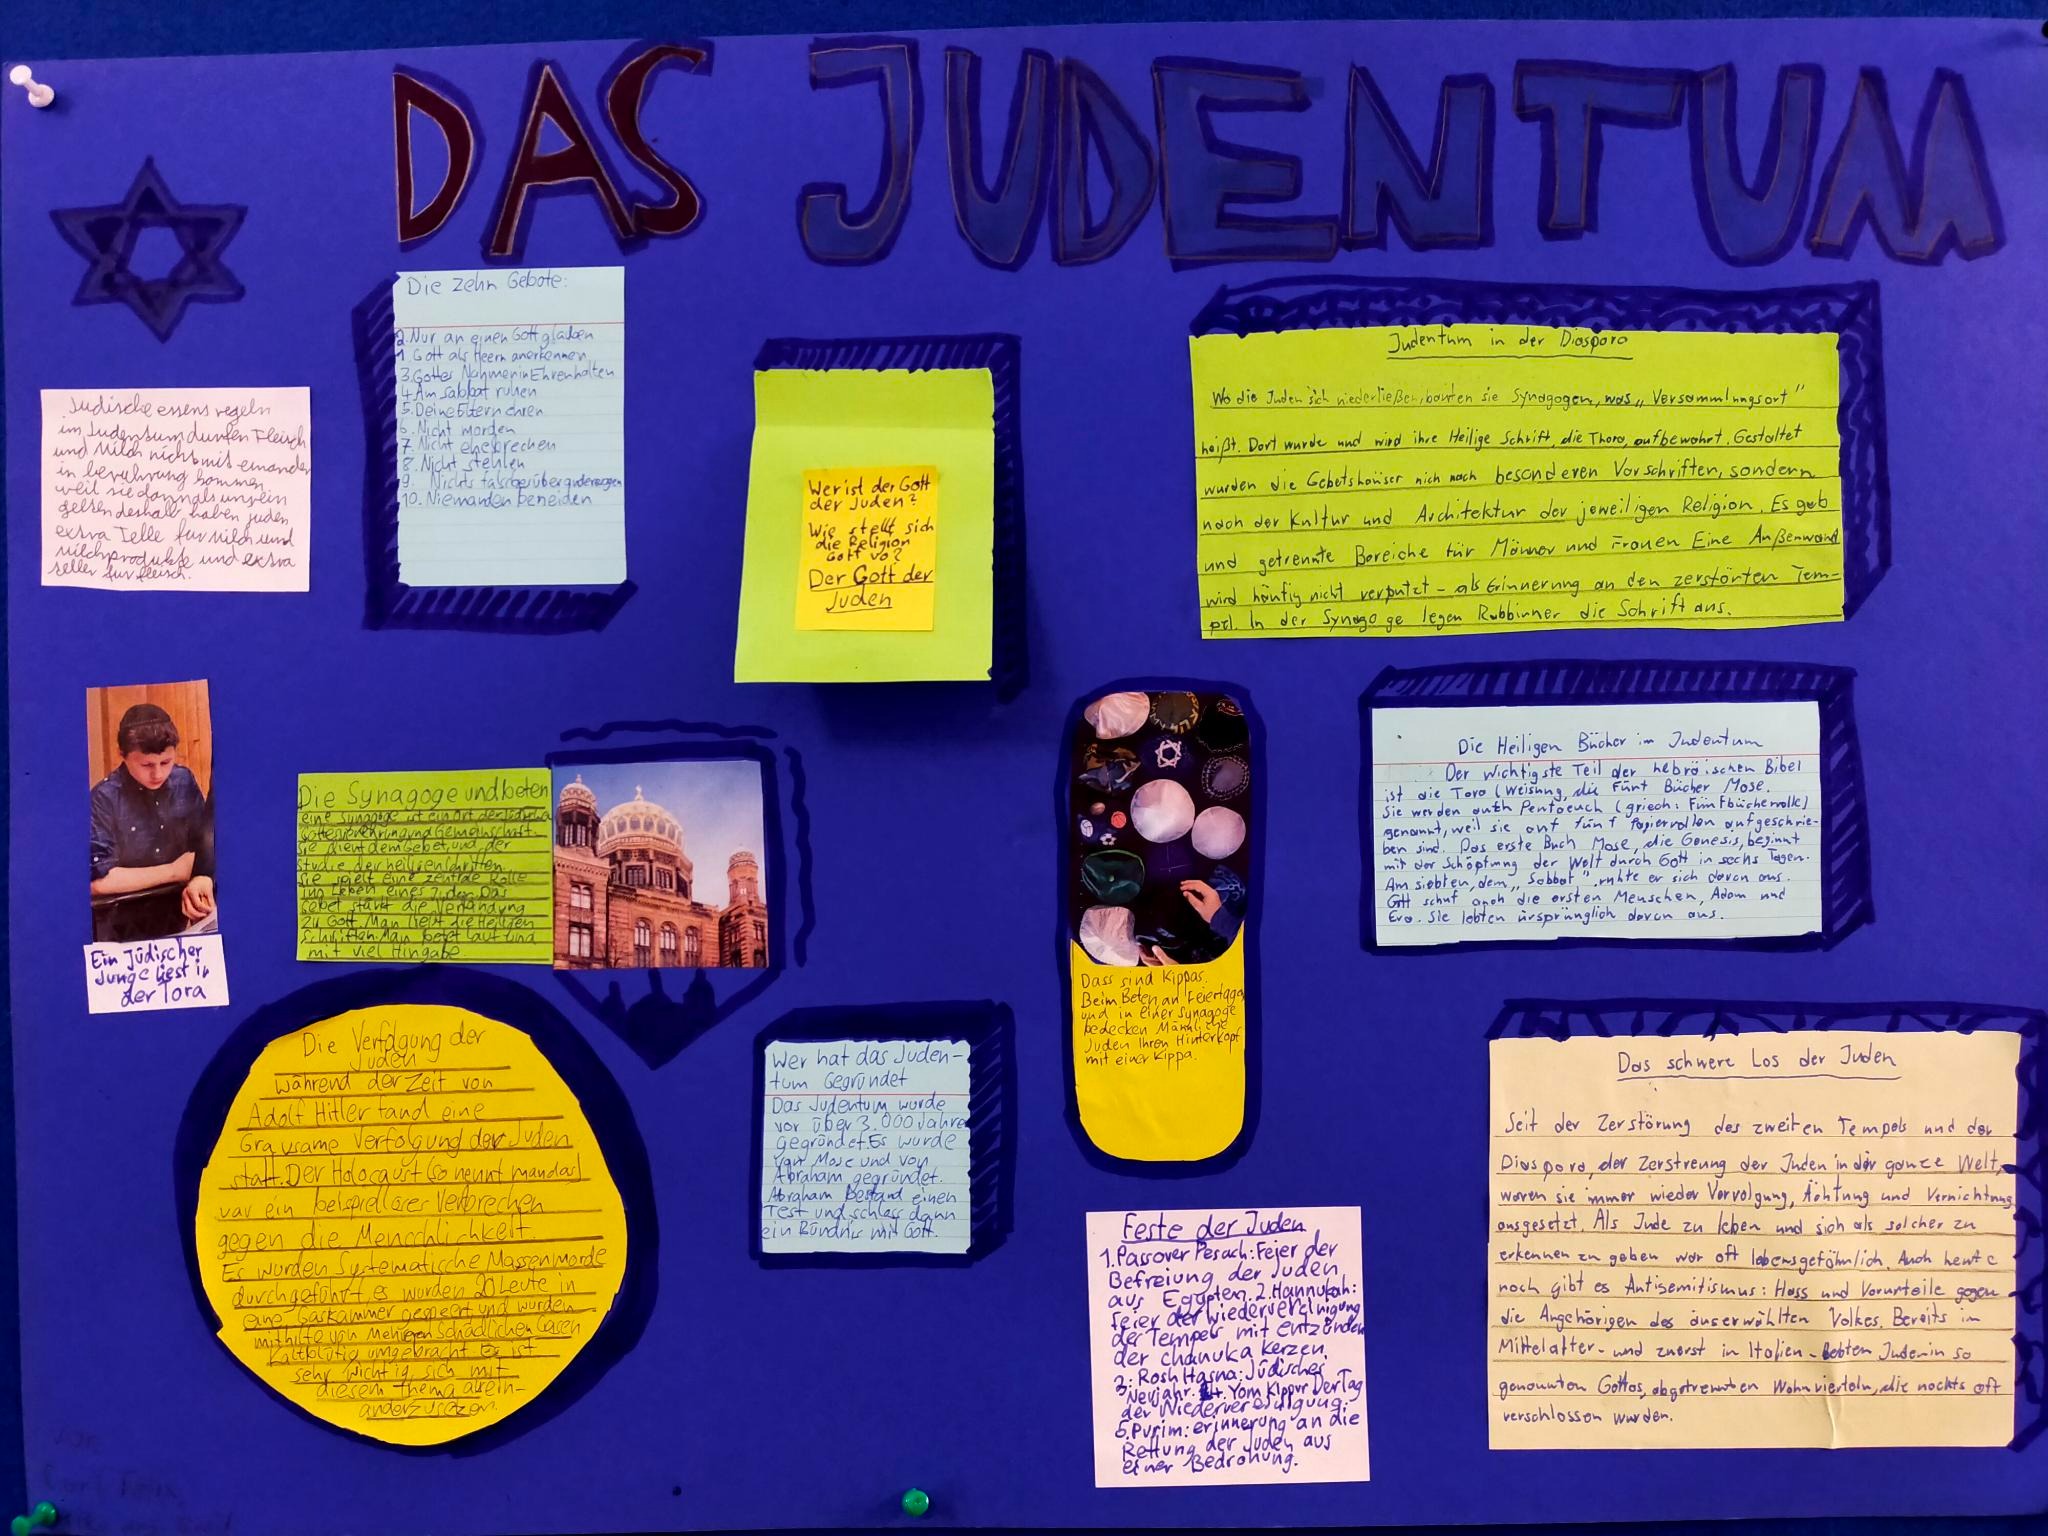 DAS JUDENTUM
Die zehn Gebote:
2. Nur an einen Gott glauben
1. Gott als Heern anerkennen
3. Gottes Nahmen in Ehren halten
4. Am sabbat ruhen
5. Deine Eltern ehren
6. Nicht morden
7. Nicht ehebrechen
8. Nicht stehlen
9. Nichts über
10. Niemanden beneiden
Jüdische essens regeln
im Judentum durfen Fleisch
und Milch nicht mit einander
in beruhrung kommen
weil sie damals unrein
gelten deshalb haben juden
extra Telle fur Milch und
milchprodukte und extra
teller fur fleisch.
Wer ist der Gott
der Juden?
Wie stellt sich
die Religion
Gott vo?
Der Gott der
Juden
Judentum in der Diaspora
Wo die Juden sich niederließen, bauten sie Synagogen, was „Versammlungsort"
heißt. Dort wurde und wird ihre Heilige Schrift, die Thora, aufbewahrt. Gestaltet
wurden die Gebetshäuser nich nach besonderen Vorschriften, sondern
nach der Kultur und Architektur der jeweiligen Religion. Es gab
und getrennte Bereiche für Männer und Frauen Eine Außenwand
wird häufig nicht verputzt - als Erinnerung an den zerstörten Tem-
pel. In der Synago ge legen Rabbinner die Schrift aus.
Ein Jüdischer
Junge liest in
der Tora
Die Synagoge und beten
eine Synagoge ist ein Ort der
Gottesverehrung und Gemeinschaft.
Sie dient dem Gebet und der
Studie der heiligen
Sie spielt eine zentrale Rolle
im Leben eines Juden. Das
Gebet stärkt die Verbindung
zu Gott. Man liest die Heiligen
Schriften. Man betet laut und
mit viel Hingabe.
Dass sind Kippas.
Beim Beten an Feiertagen
und in einer Synagoge
bedecken Männliche
Juden Ihren Hinterkopf
mit einer Kippa.
Die Heiligen Bücher im Judentum
Der wichtigste Teil der hebräischen Bibel
ist die Tora (Weisung, die Fünf Bücher Mose.
Sie werden auch Pentaeuch (griech: Fünfbücherrolle)
genannt, weil sie auf fünf Papierrollen aufgeschrie-
ben sind. Das erste Buch Mose, die Genesis, beginnt
mit der Schöpfung der Welt durch Gott in sechs Tagen.
Am siebten, dem „Sabbat" ruhte er sich davon aus.
Gott schuf auch die ersten Menschen, Adam und
Eva. Sie lebten ürsprünglich davon aus.
Die Verfolgung der
Juden
während der Zeit von
Adolf Hitler fand eine
Grausame Verfolgung der Juden
statt. Der Holocaust (so nennt man das)
war ein beispielloses Verbrechen
gegen die Menschlichkeit.
Es wurden Systematische Massenmorde
durchgeführt, es wurden 20 Leute in
eine Gaskammer gespeert und wurden
mithilfe von Schädlichen Gasen
kaltblütig umgebracht. Es ist
sehr wichtig, sich mit
diesem thema
anderzusezen.
Wer hat das Juden-
tum Gegründet
Das Judentum wurde
vor über 3.000 Jahre
gegründet. Es wurde
von Mose und von
Abraham gegründet.
Abraham bestand einen
Test und schloss dann
ein Bündnis mit Gott.
Feste der Juden
1. Passover Pesach: Feier der
Befreiung der Juden
aus Egypten. 2. Hannukah:
feier der wiedervereinigung
der Tempels mit entzünden
der chanuka kerzen.
3: Rosh Hasna: Jüdisches
Neujahr. 4. Yom Kippur Der Tag
der Wiedervereinigung.
5. Purim: erinnerung an die
Rettung der Juden aus
einer Bedrohung.
Das schwere Los der Juden
Seit der Zerstörung des zweiten Tempels und der
Diaspora, der Zerstreung der Juden in der ganze Welt,
waren sie immer wieder Vervolgung, Ächtung und Vernichtung
ausgesetzt. Als Jude zu leben und sich als solcher zu
erkennen zu geben war oft lebensgefähnlich. Auch heute
noch gibt es Antisemitismus: Hass und Vorurteile gegen
die Angehörigen des auserwählten Volkes. Bereits im
Mittelalter - und zuerst in Italien - lebten Juden in so
genannten Gettos, abgetrennten Wohnvierteln, die nachts oft
verschlossen wurden.